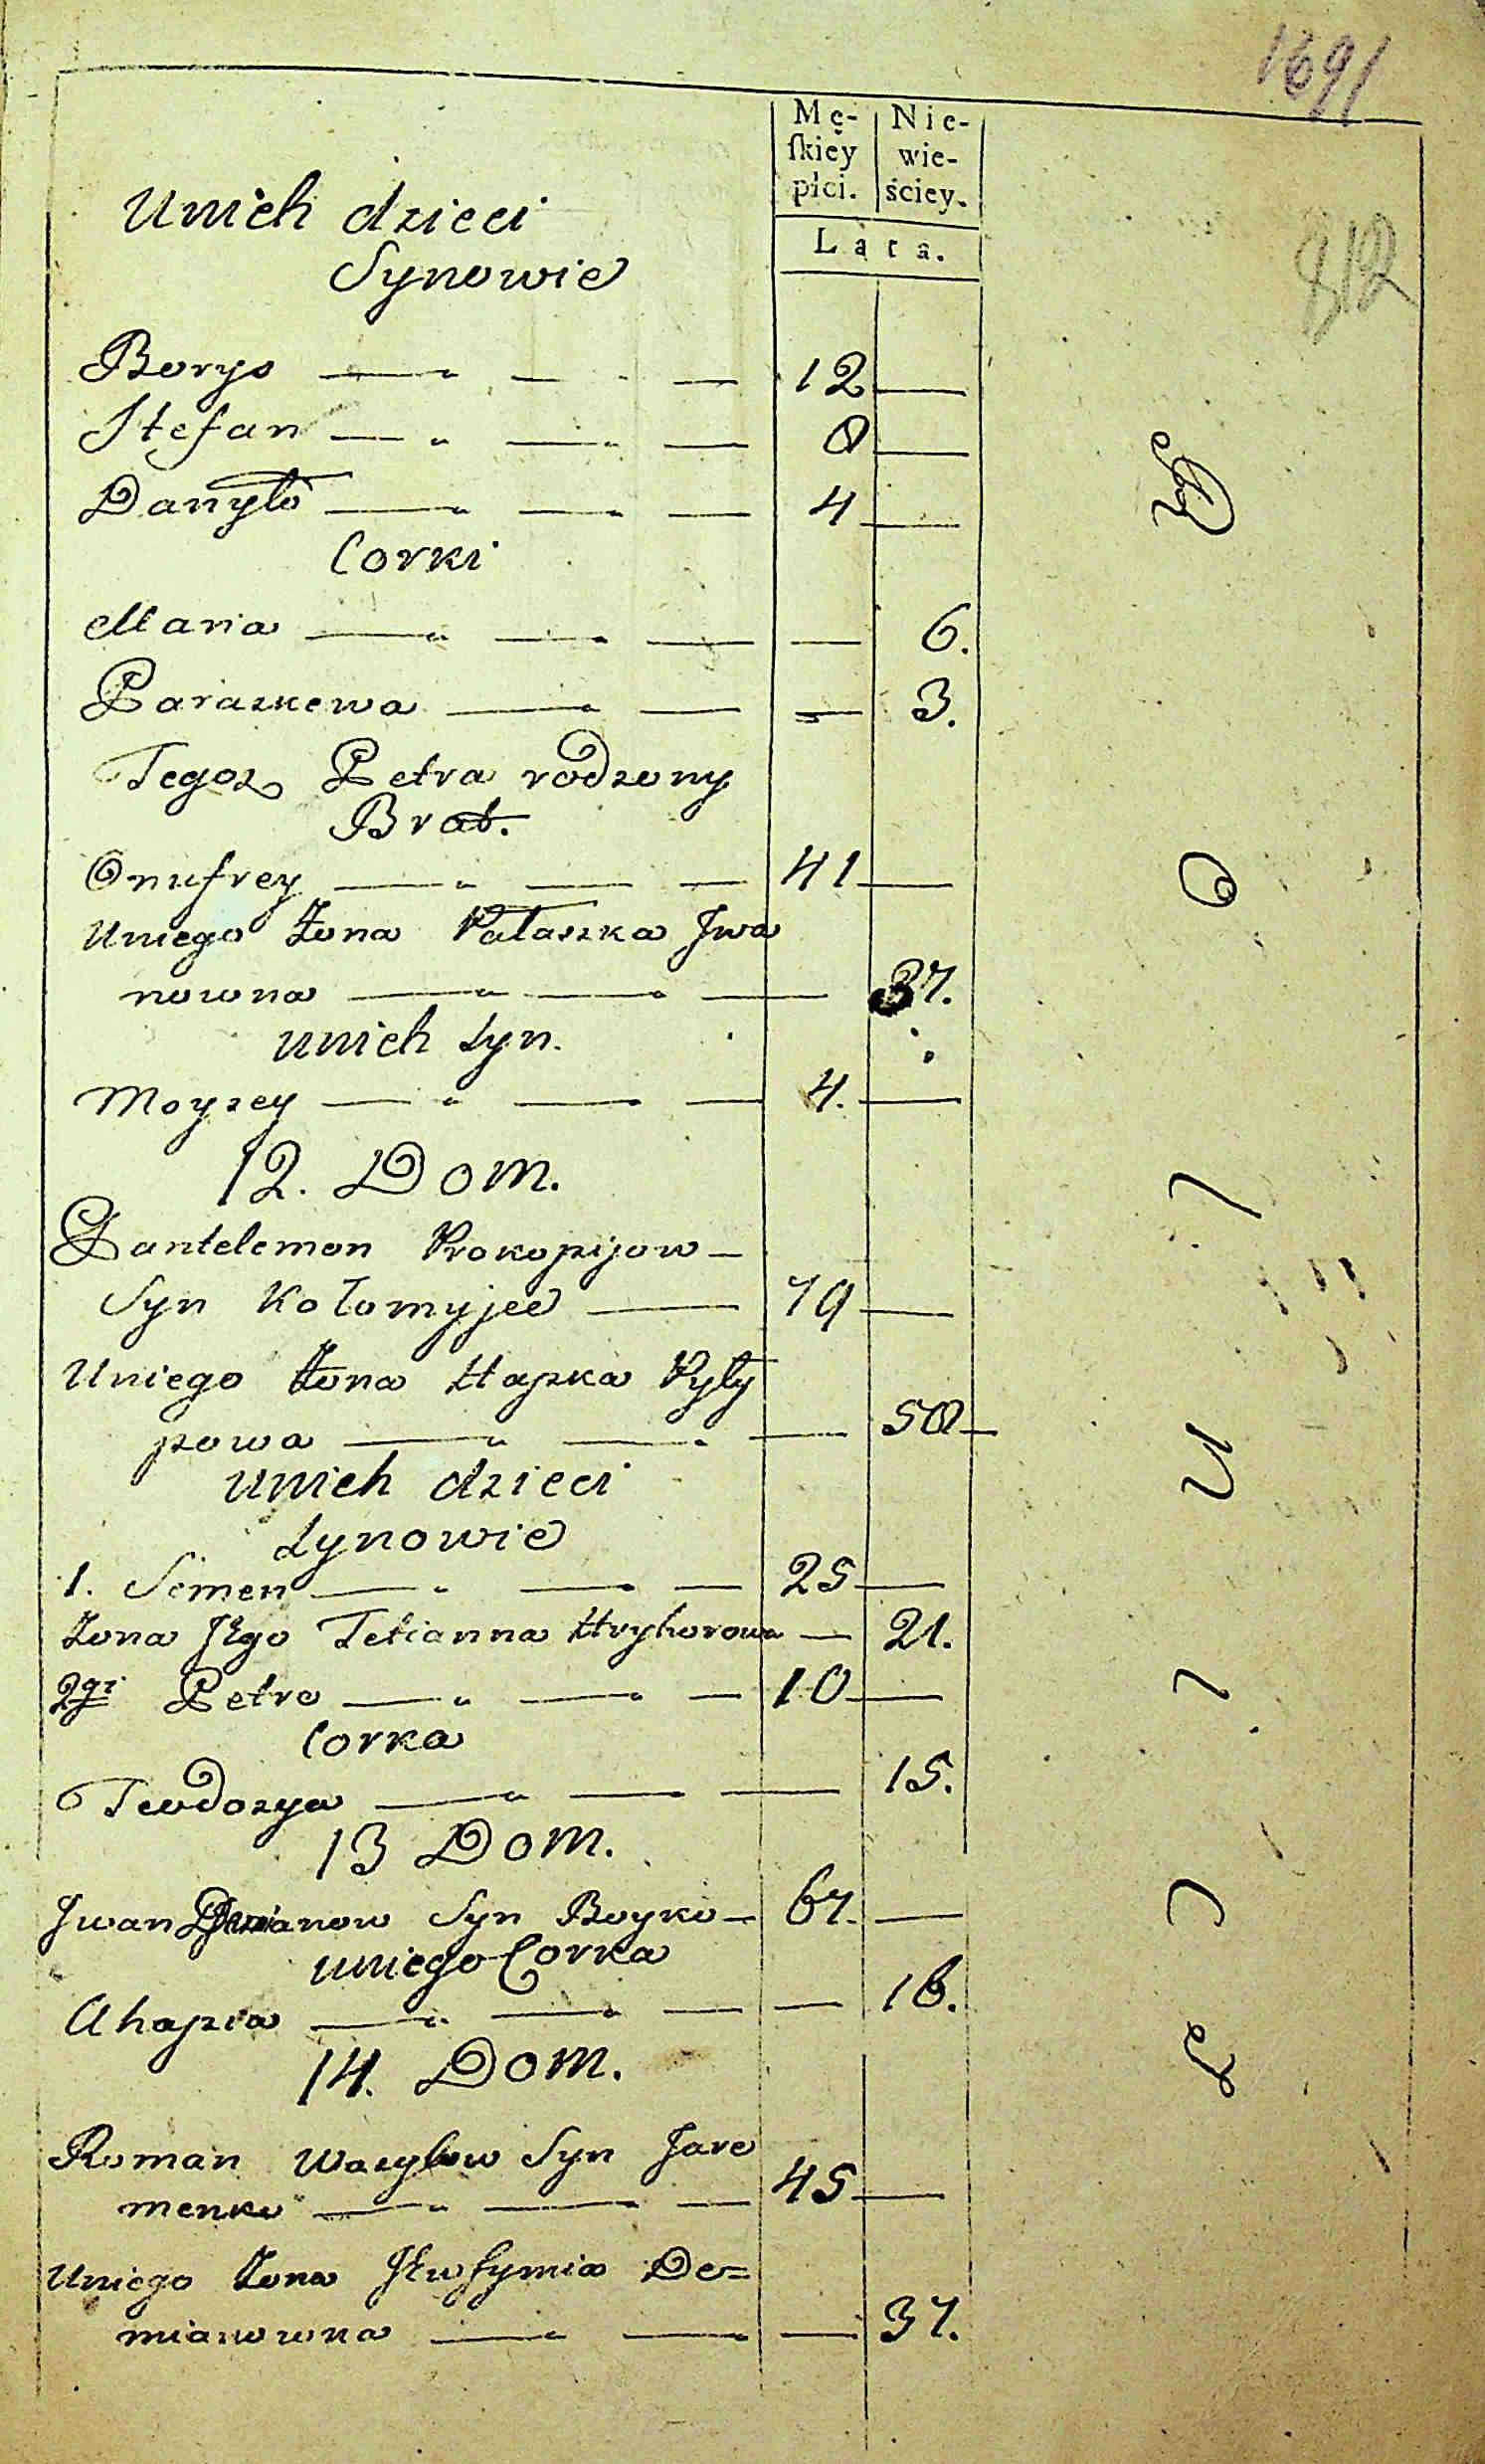 1691
Mę- Nie-
ſkiey wie-
płci. ściey.
Lata.
812
Unich dzieci
Synowie
Borys — „ — — 12 —
Stefan — „ — — 8 —
Danyło — „ — — 4 —
Corki
Maria — „ — — — 6.
Paraskewa — „ — — 3.
Tegoz Petra rodzony
Brat.
Onufrey — „ — — 41 —
Uniego Żona Pałaszka Jwa
nowna — „ — — 37.
unich Syn.
Moyzey — „ — — 4. —
12. Dom.
Pantelemon Prokopijow —
Syn Kołomyjec — 79 —
Uniego Żona Hapka Pyły
powa — „ — — 58 —
unich dzieci
Synowie
1. Semen — „ — — 25 —
Żona Jego Tetianna Hryhorowa — 21.
2gi Petro — „ — — 10 —
Corka
Teodozya — „ — — 15.
13 Dom.
Jwan Syn Boyko — 67. —
uniego Corka
Ahapia — „ — — — 16.
14. Dom.
Roman Wasylow Syn Jare
menko — „ — — 45 —
Uniego Żona Jewfymia De=
mianowna — „ — — — 37.